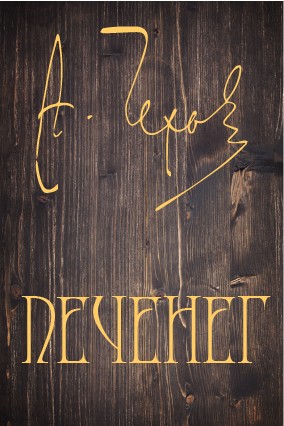 А. Чехов
ПЕЧЕНЕГ